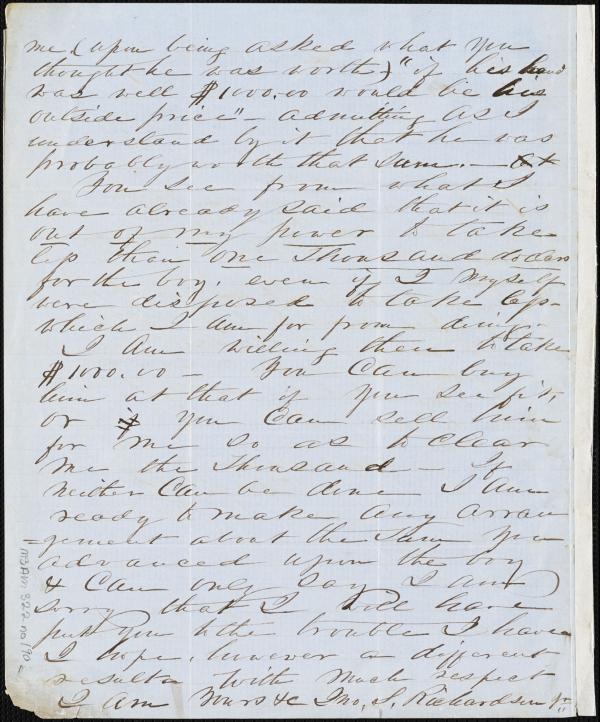 me (upon being asked what you
thought he was worth) "if his hand
was well $1000.00 would be his
outside price" - admitting as I
understand by it that he was
probably worth that sum. -
You see from what I
have already said that it is
out of my power to take
less than one thousand dollars
for the boy. even if I myself
were disposed to take less -
which I am far from doing -
I am willing then to take
$1000.00 - You can buy
him at that if you see fit,
or if you can sell him
for me so as to clear
me the thousand - If
neither can be done I am
ready to make any arran
=gement about the sum you
advanced upon the boy
& can only say I am
sorry that I will have
put you to the trouble I have
I hope, however a different
result with much respect
I am Yours &c Jno, S, Richardson Jr
MS.Am. 322 no 190